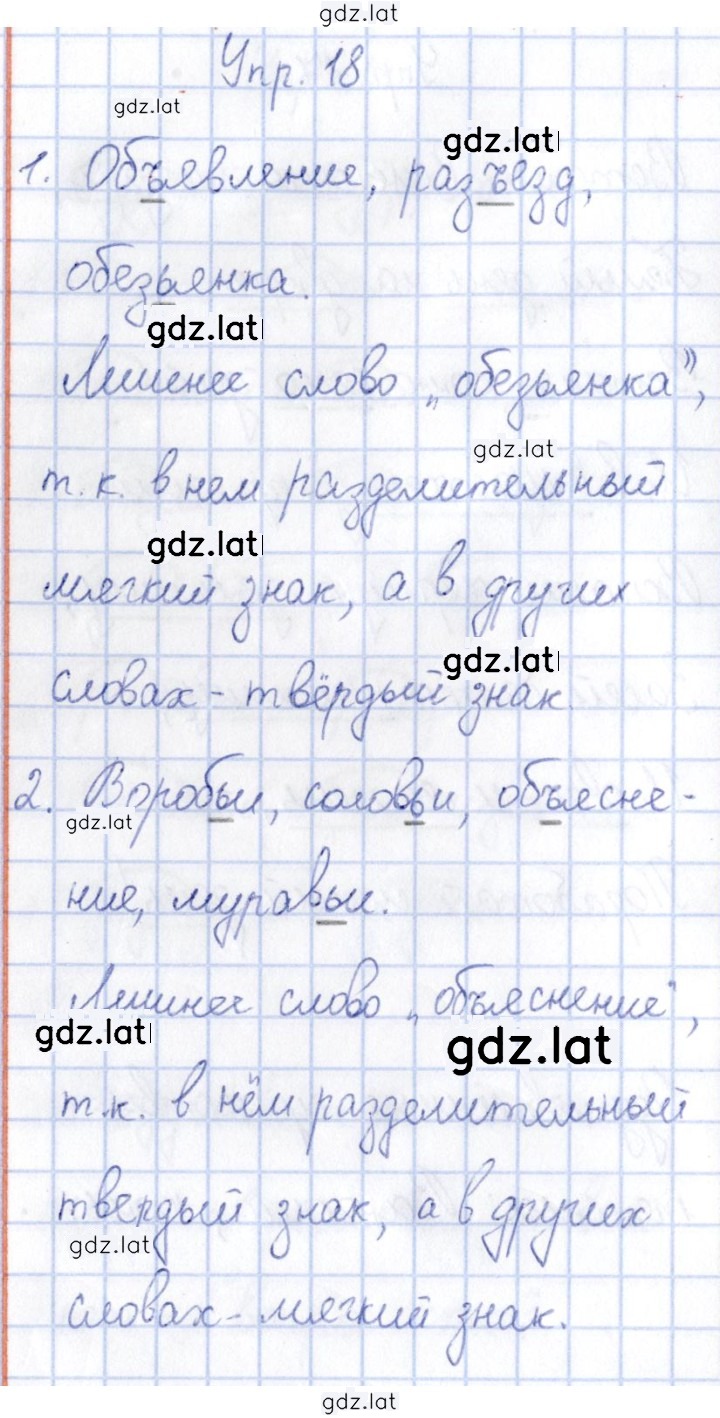 gdz.lat
Упр. 18
gdz.lat
gdz.lat
1. Объявление, разъезд,
обезьянка.
gdz.lat
Лишнее слово „обезьянка",
gdz.lat
т.к. в нем разделительный
gdz.lat
мягкий знак, а в других
gdz.lat
словах - твёрдый знак.
2. Воробьи, соловьи, объясне-
gdz.lat
ние, муравьи.
Лишнее слово „объяснение",
gdz.lat
gdz.lat
т.к. в нём разделительный
твердый знак, а в других
gdz.lat
словах - мягкий знак.
gdz.lat